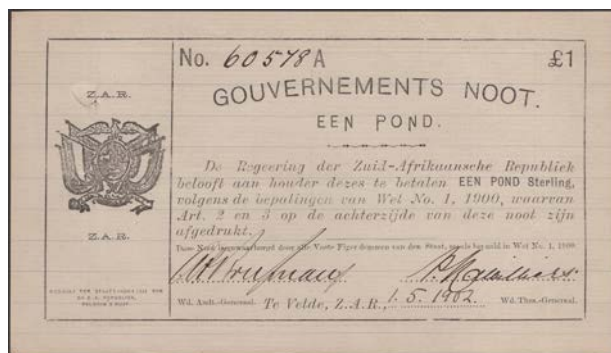 No. 60578 A £1
GOUVERNEMENTS NOOT.
EEN POND.
De Regeering der Zuid-Afrikaansche Republiek
belooft aan houder dezes te betalen EEN POND Sterling,
volgens de bepalingen van Wet No. 1, 1900, waarvan
Art. 2 en 3 op de achterzijde van deze noot zijn
afgedrukt.
Deze Noot is gewaarborgd door alle Vaste Eigendommen van den Staat, zooals bepaald in Wet No. 1, 1900.
Wd. Audt.-Generaal. Te Velde, Z.A.R., 1. 5. 1902. Wd. Thes.-Generaal.
Z.A.R.
Z.A.R.